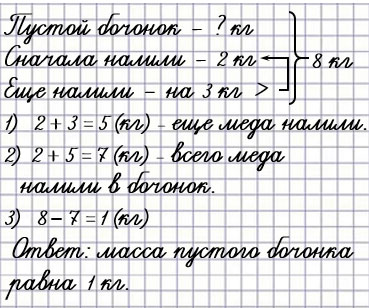 Пустой бочонок – ? кг
Сначала налили – 2 кг
Еще налили – на 3 кг >
8 кг
1) 2 + 3 = 5 (кг) – еще меда налили.
2) 2 + 5 = 7 (кг) – всего меда
налили в бочонок.
3) 8 – 7 = 1 (кг)
Ответ: масса пустого бочонка
равна 1 кг.